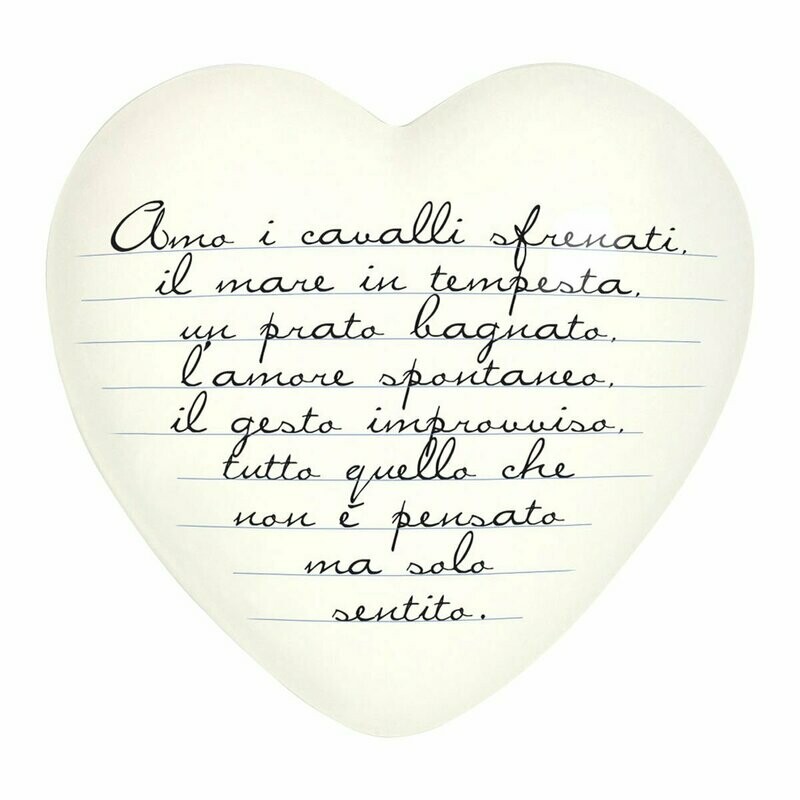 Amo i cavalli sfrenati,
il mare in tempesta,
un prato bagnato,
l'amore spontaneo,
il gesto improvviso,
tutto quello che
non è pensato
ma solo
sentito.